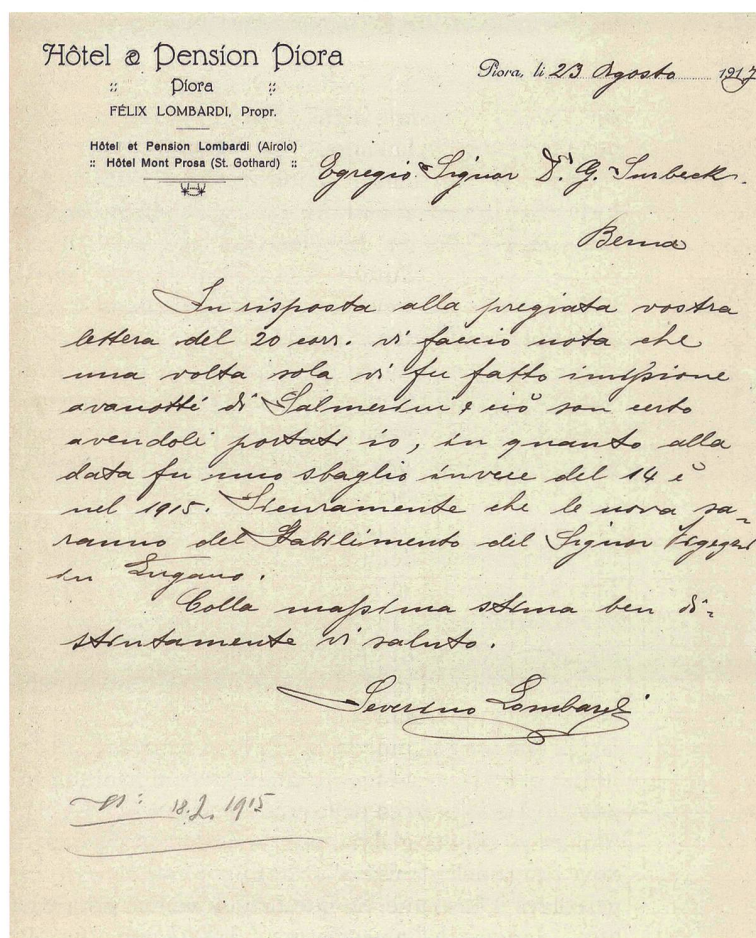 Hôtel & Pension Piora
:: Piora ::
FÉLIX LOMBARDI, Propr.
Hôtel et Pension Lombardi (Airolo)
:: Hôtel Mont Prosa (St. Gothard) ::
Piora, li 23 Agosto 1917
Egregio Signor Dr. G. Surbeck.
Berna
In risposta alla pregiata vostra
lettera del 20 corr. vi faccio nota che
una volta sola vi fu fatto imissione
avanotti di Salmerini e ciò son certo
avendoli portati io, in quanto alla
data fu uno sbaglio invece del 14 è
nel 1915. Sicuramente che le uova sa-
ranno del Stabilimento del Signor
in Lugano.
Colla massima stima ben di-
stintamente vi saluto.
Severino Lombardi
18.2.1915